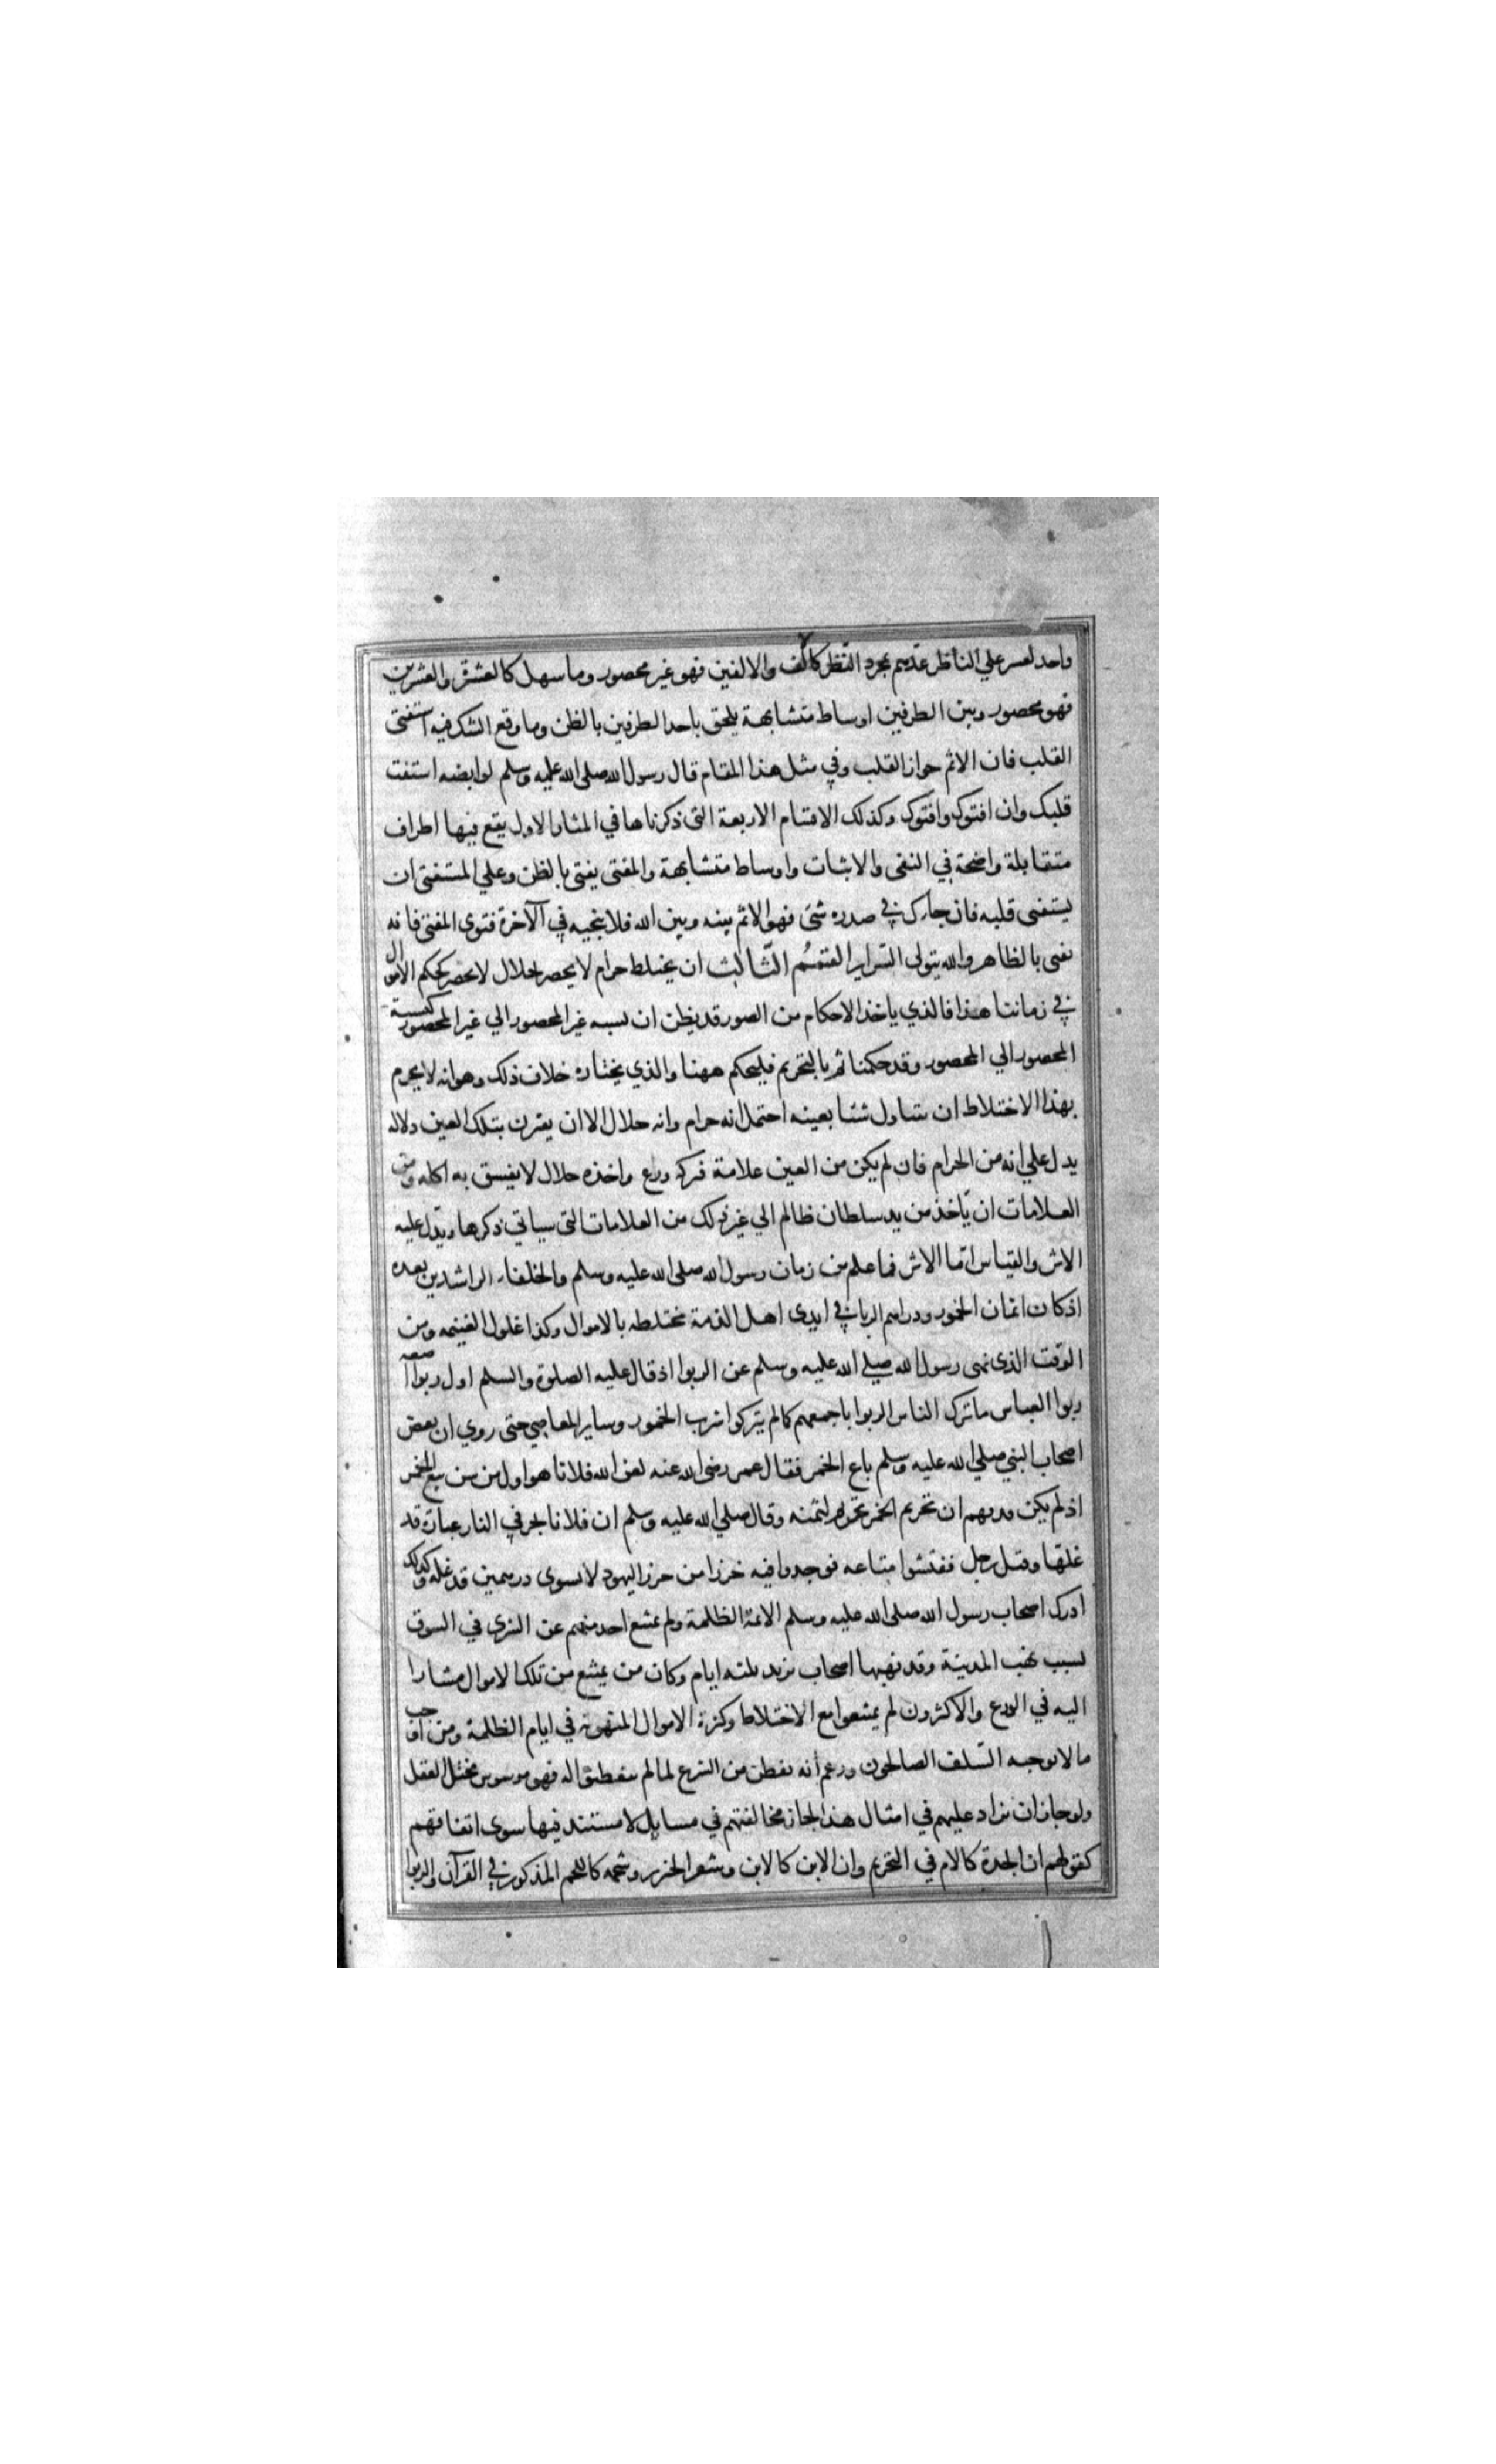 واحد لعسر علي الناظر عدهم بمجرد النظر كالالف والالفين فهو غير محصور وما سهل كالعشرة والعشرين
فهو محصور وبين الطرفين اوساط متشابهة يلحق باحد الطرفين بالظن وما وقع الشك فيه استفتى
القلب فان الاثم حواز القلب وفي مثل هذا المقام قال رسول الله صلى الله عليه وسلم لوابضه استفت
قلبك وان افتوك وافتوك وكذلك الاقسام الاربعة التى ذكرناها في المثار الاول يقع فيها اطراف
متقابلة واضحة في النفى والاثبات واوساط متشابهة والمفتى يفتى بالظن وعلي المستفتى ان
يستفتى قلبه فان حاك في صدره شئ فهو الاثم بينه وبين الله فلا ينجيه في الآخرة فتوى المفتى فانه
يفتى بالظاهر والله يتولى السراير القسم الثالث ان يختلط حرام لا يحصر بحلال لا يحصر كحكم الاموال
في زماننا هذا فالذي ياخذ الاحكام من الصور قد يظن ان نسبه غير المحصور الي غير المحصور كنسبة
المحصور الي المحصور وقد حكمنا ثم بالتحريم فليحكم ههنا والذي نختاره خلاف ذلك وهو انه لا يحرم
بهذا الاختلاط ان يتناول شئا بعينه احتمل انه حرام وانه حلال الا ان يقترن بتلك العين دلاله
يدل علي انه من الحرام فان لم يكن من العين علامة فتركه ورع واخذه حلال لا يفسق به اكله ومن
العلامات ان يأخذ من يد سلطان ظالم الي غير ذلك من العلامات التى سياتي ذكرها ويدل عليه
الاثر والقياس اما الاثر فما علم من زمان رسول الله صلى الله عليه وسلم والخلفاء الراشدين بعده
اذ كان اثمان الخمور ودراهم الربا في ايدى اهل الذمة مختلطه بالاموال وكذا غلول الغنيمه ومن
الوقت الذى نهى رسول الله صلي الله عليه وسلم عن الربوا اذ قال عليه الصلوة والسلم اول ربوا اضعه
ربوا العباس ما ترك الناس الربوا باجمعهم كما لم يتركوا شرب الخمور وساير المعاصي حتى روي ان بعض
اصحاب النبي صلي الله عليه وسلم باع الخمر فقال عمر رضى الله عنه لعن الله فلانا هو اول من سن بيع الخمر
اذ لم يكن قد فهم ان تحريم الخمر تحريم لثمنه وقال صلي الله عليه وسلم ان فلانا يجر في النار عباءة قد
غلها وقتل رجل ففتشوا متاعه فوجدوا فيه خرزا من خرز اليهود لا تسوى درهمين قد غله وكذلك
ادرك اصحاب رسول الله صلى الله عليه وسلم الائمة الظلمة ولم يمتنع احد منهم عن الشرى في السوق
لسبب نهب المدينة وقد نهبها اصحاب يزيد ثلثه ايام وكان من يمتنع من تلك الاموال مشارا
اليه في الورع والاكثرون لم يمتنعوا مع الاختلاط وكثرة الاموال المنهوبه في ايام الظلمة ومن اوجب
ما لا يوجبه السلف الصالحون وزعم انه تفطن من الشرع لما لم يتفطنوا له فهو موسوس مختل العقل
ولو جاز ان نزاد عليهم في امثال هذا لجاز مخالفتهم في مسايل لا مستند فيها سوى اتفاقهم
كقولهم ان الجدة كالام في التحريم وان الابن كالابن وشعر الخنزير وشحمه كاللحم المذكور في القرآن والربوا